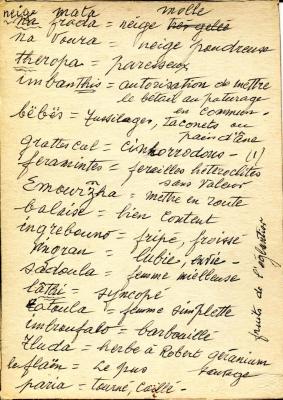 neige mata molle
na froda = neige très gelée
na voura = neige poudreuse
theropa = paresseux
imbanthis = autorisation de mettre
le bétail au pâturage
en commun
bèbès = Tussilages, taconets ou
pain d'Ene
grattacul = cinhorrodons - (1)
feramintes = ferailles hétéroclites
sans valeur
Emourzha = mettre en route
balaise = bien content
ingrebouno = fripé, froissé
vingran = lubie, envie -
sadoula = femme mielleuse
lâthi = syncopé
Catoula = femme simplette
imbroufato = barbouillé
Fluda = herbe à Robert géranium
sauvage
le flaën = Le pus
paria = tourné, caillé -
fruits de l'églantier